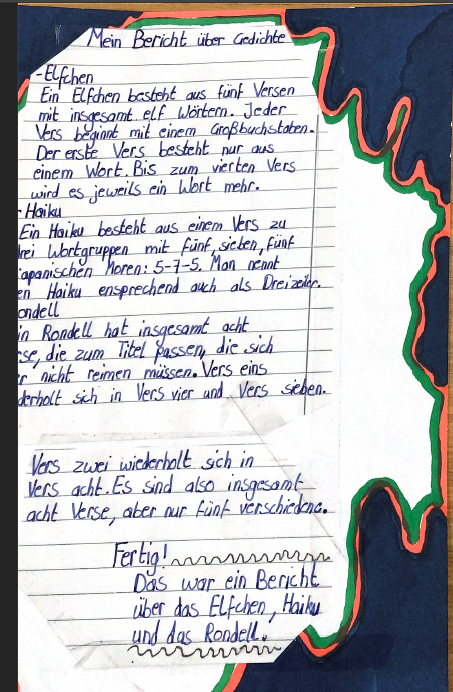 Mein Bericht über Gedichte
-Elfchen
Ein Elfchen besteht aus fünf Versen
mit insgesamt elf Wörtern. Jeder
Vers beginnt mit einem Großbuchstaben.
Der erste Vers besteht nur aus
einem Wort. Bis zum vierten Vers
wird es jeweils ein Wort mehr.
-Haiku
Ein Haiku besteht aus einem Vers zu
rei Wortgruppen mit fünf, sieben, fünf
apanischen Moren: 5-7-5. Man nennt
en Haiku ensprechend auch als Dreizeiler.
ondell
in Rondell hat insgesamt acht
se, die zum Titel passen, die sich
r nicht reimen müssen. Vers eins
derholt sich in Vers vier und Vers sieben.
Vers zwei wiederholt sich in
Vers acht. Es sind also insgesamt
acht Verse, aber nur fünf verschiedene.
Fertig!
Das war ein Bericht
über das Elfchen, Haiku
und das Rondell.